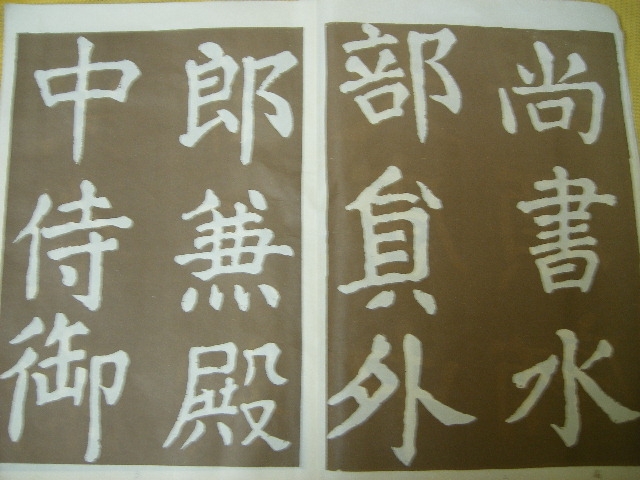 尚書水
部員外
郎兼殿
中侍御